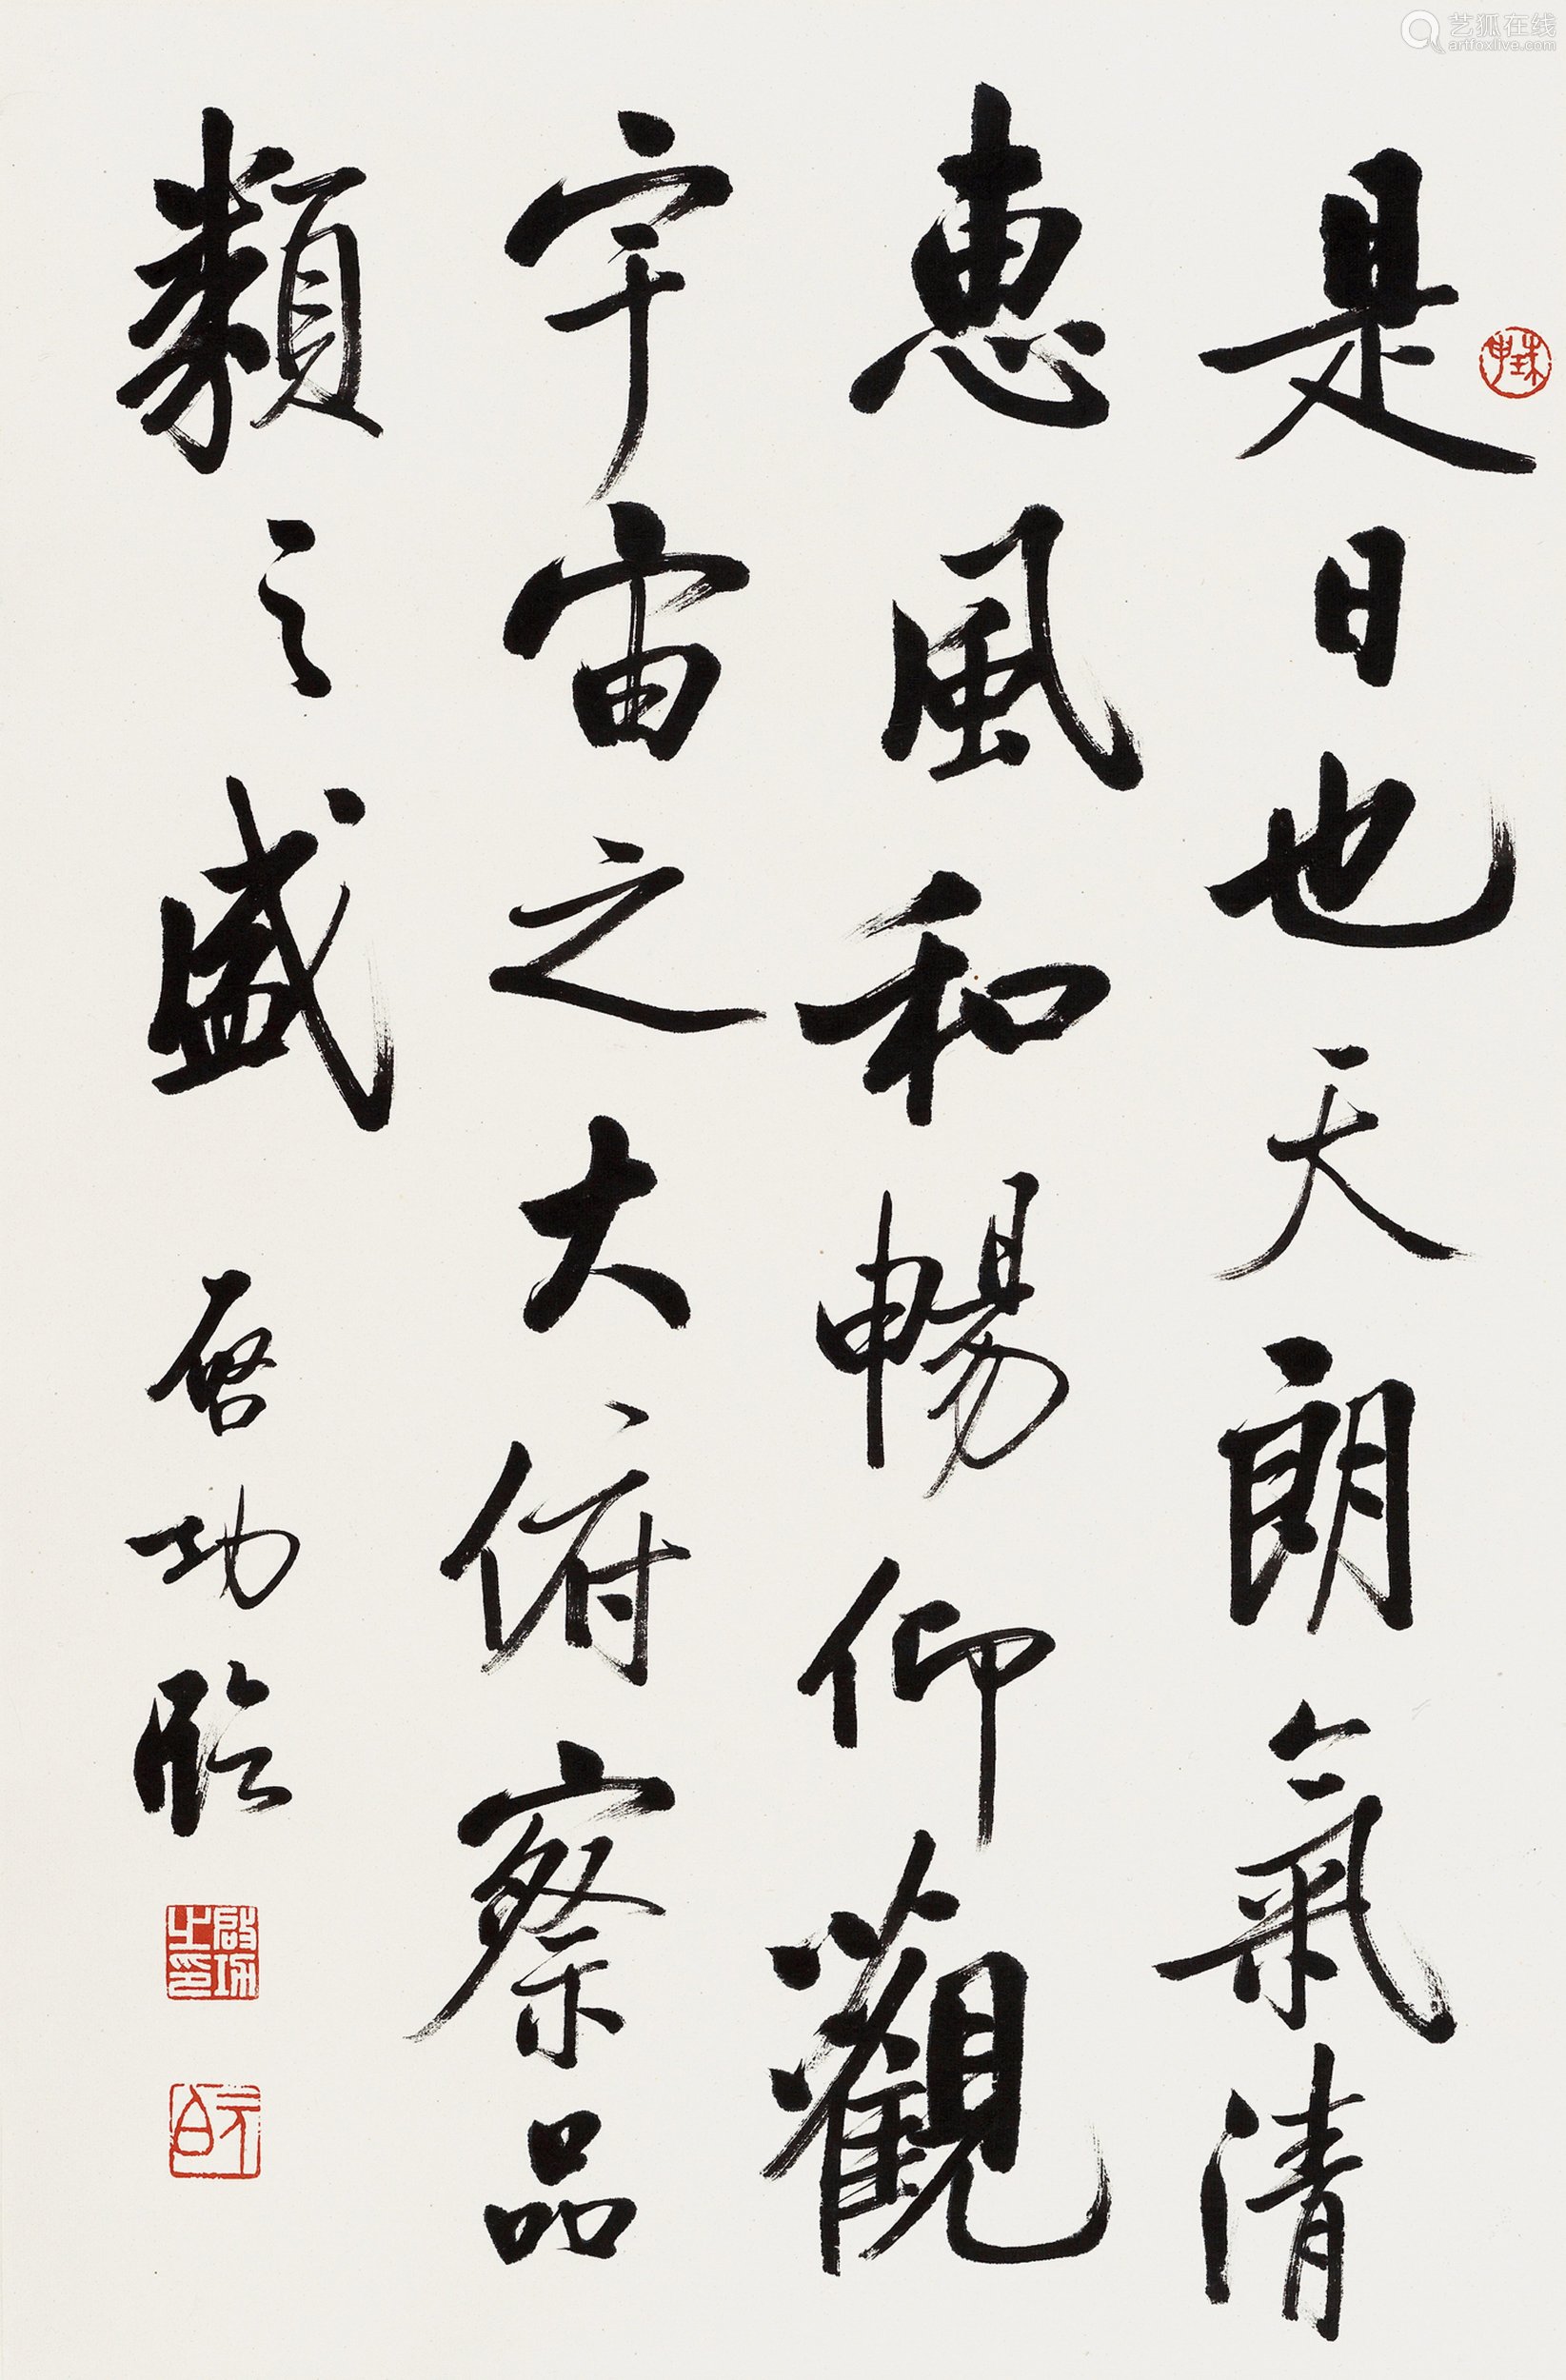 是日也天朗氣清
惠風和暢仰觀
宇宙之大俯察品
類之盛
啓功臨
啟功之印
元白
艺狐在线
artfoxlive.com